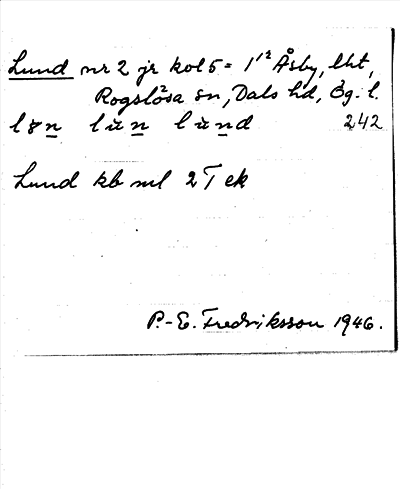 Lund nr 2 jr kol 5 = 1/2 Åsby, lht,
Rogslösa sn, Dals hd, Ög. l.
l u n d 242
Lund kb ml 2 T ek
P.-E. Fredriksson 1946.